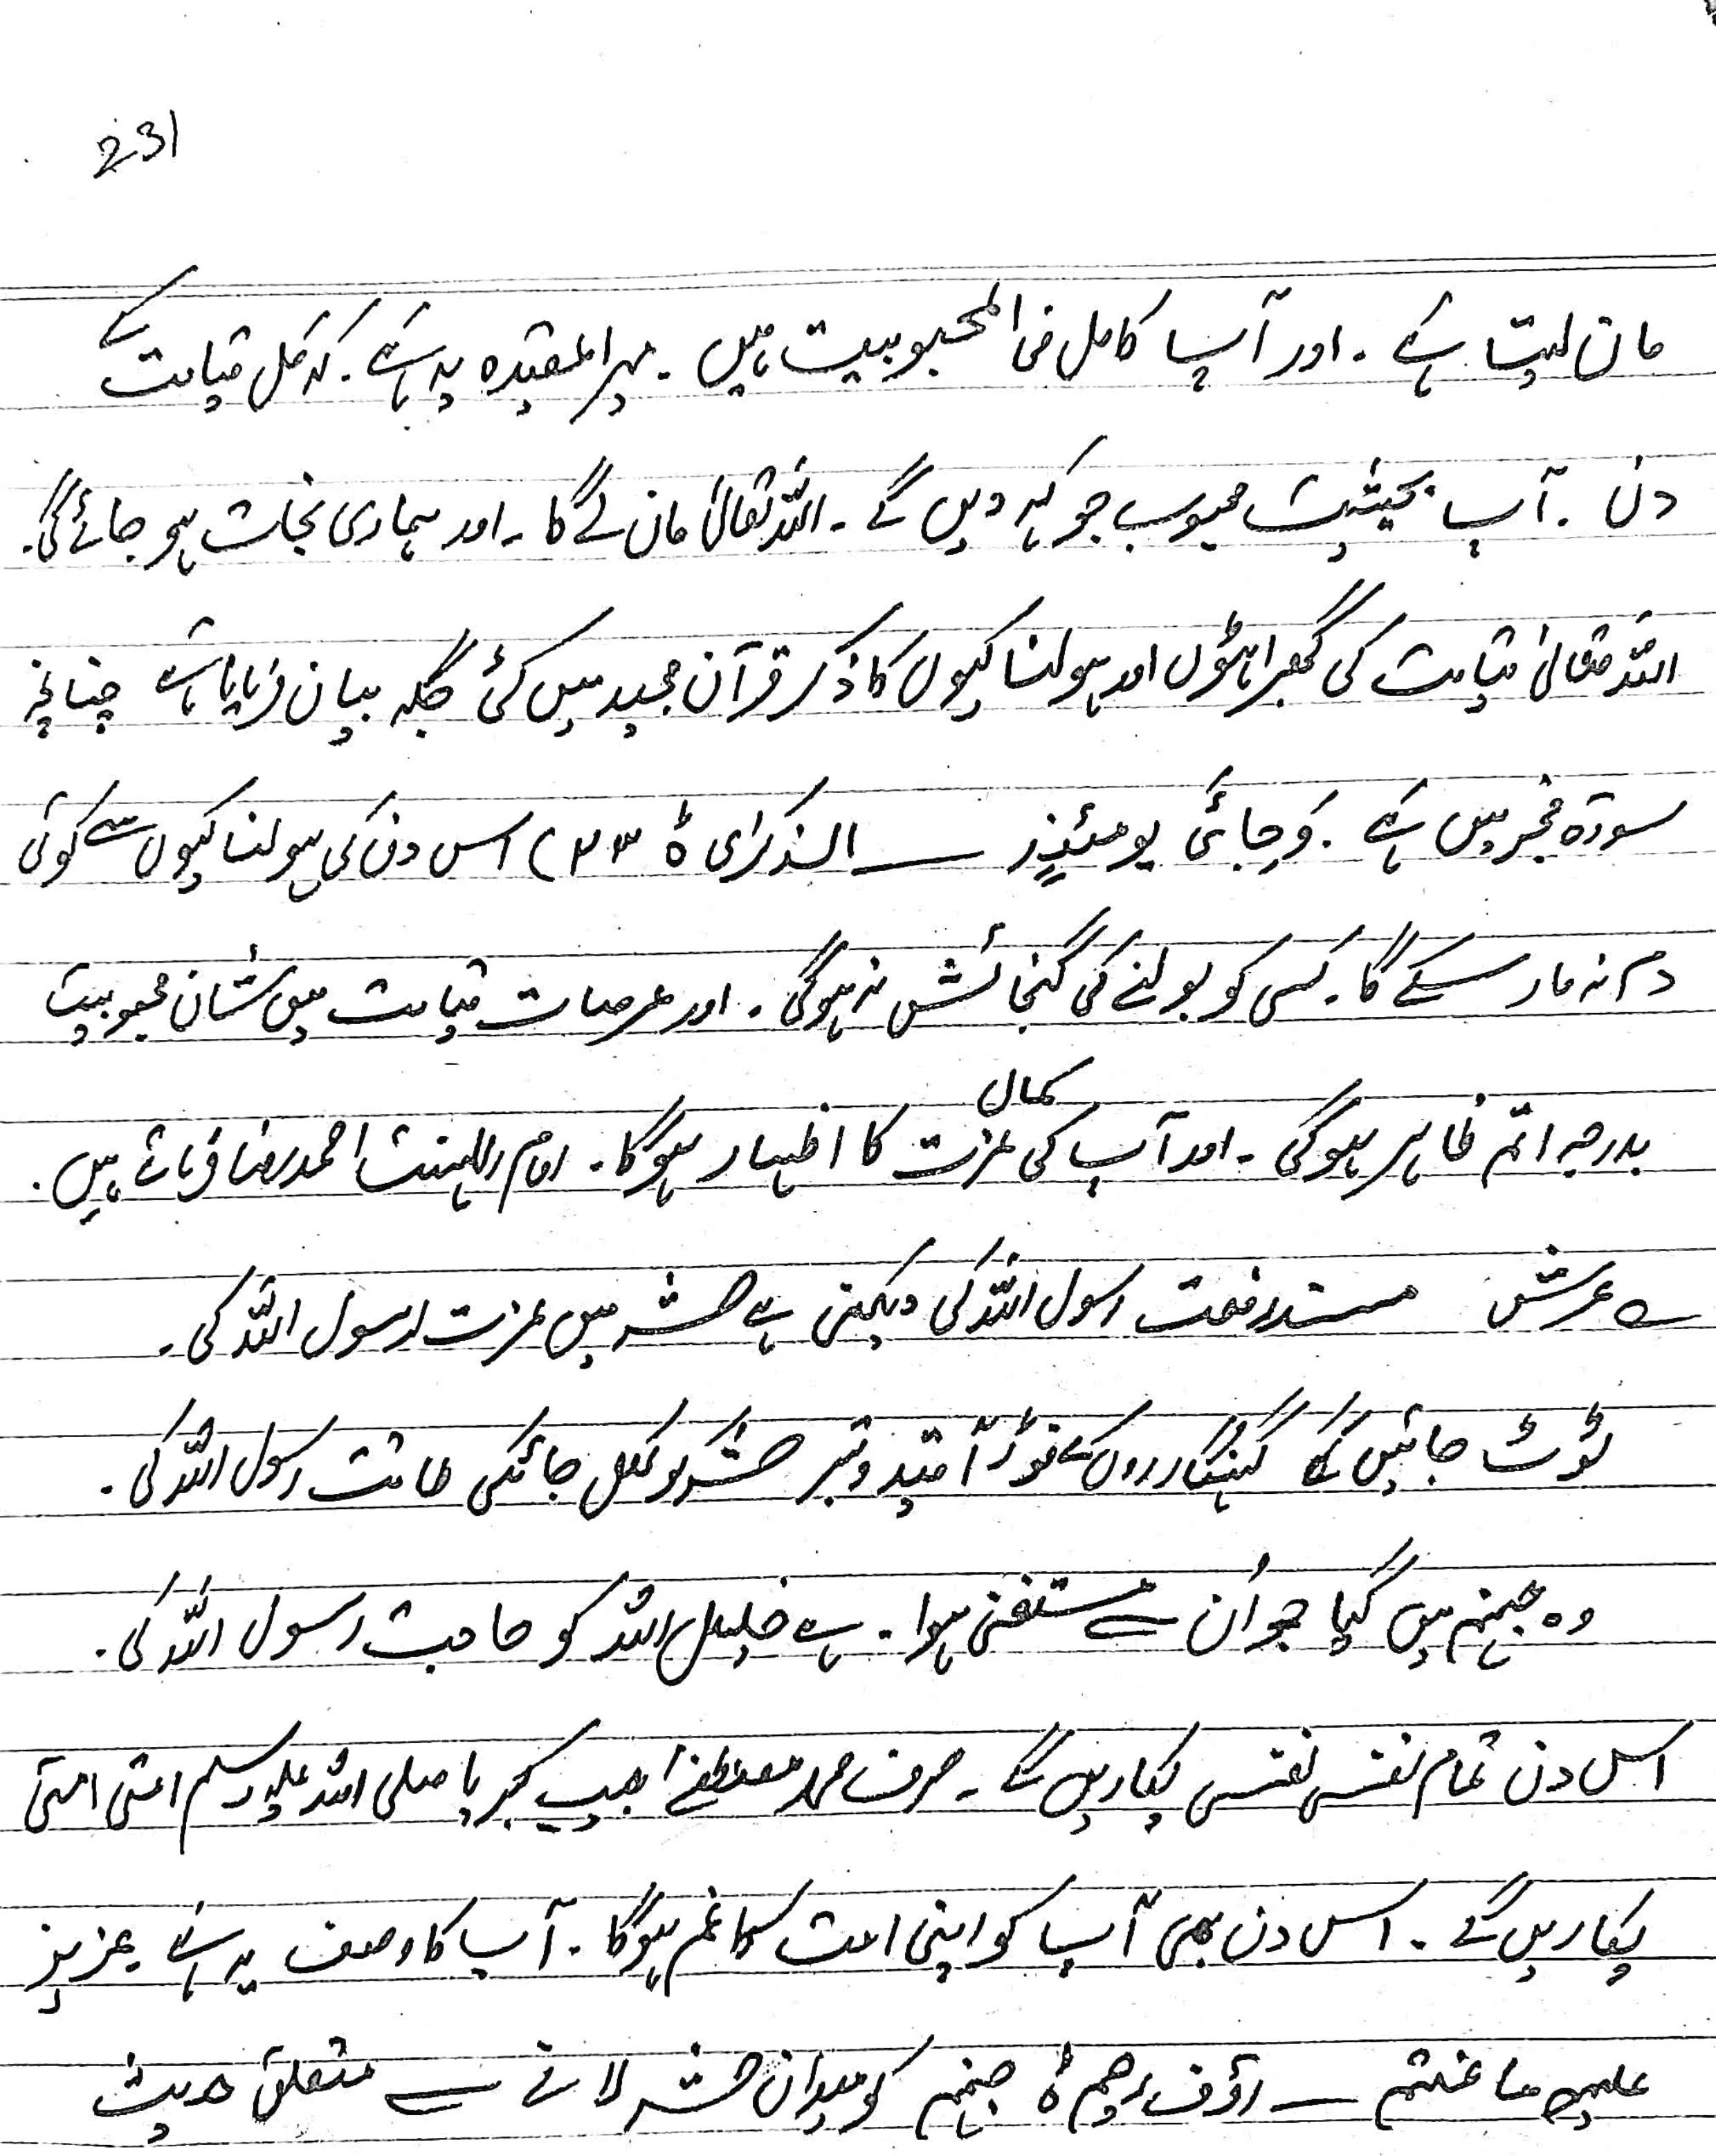 231
مان لیتا ہے ۔ اور آپ کامل فی المحبوبیت ہیں ۔ میرا عقیدہ یہ ہے ۔ کہ کل قیامت کے
دن ۔ آپ بحیثیت محبوب جو کہہ دیں گے ۔ اللہ تعالیٰ مان لے گا ۔ اور ہماری نجات ہو جائے گی ۔
اللہ تعالیٰ قیامت کی گھبراہٹوں اور ہولناکیوں کا ذکر قرآن مجید میں کئی جگہ بیان فرمایا ہے چنانچہ
سورۃ فجر میں ہے ۔ وَجِائیَ یومئذٍ — الذکرٰی ہ ۲۳) اس دن کی ہولناکیوں سے کوئی
دم نہ مار سکے گا ۔ کسی کو بولنے کی گنجائش نہ ہوگی ۔ اور عرصات قیامت میں شان محبوبیت
بدرجہ اتم ظاہر ہوگی ۔ اور آپ کی کمال عزت کا اظہار ہوگا ۔ امام اہلسنت احمد رضا فرماتے ہیں ۔
؎ عرش مسند رفعت رسول اللہ کی دیکھنی ہے حشر میں عزت رسول اللہ کی ۔
ٹوٹ جائیں گے گنہگاروں کے فوراً قید و حشر کو کھل جائیگی طاقت رسول اللہ کی ۔
وہ جہنم میں گیا جو اُن سے مستغنی ہوا ۔ ہے خلیل اللہ کو حاجت رسول اللہ کی ۔
اس دن تمام نفسی نفسی پکاریں گے ۔ صرف محمد مصطفےٰ حبیب کبریا صلی اللہ علیہ وسلم امتی امتی
پکاریں گے ۔ اس دن بھی آپ کو اپنی امت کا غم ہوگا ۔ آپ کا وصف یہ ہے عزیز
علیہ ما عنتم — رؤف رحیم ہ جہنم کو میدان حشر لانے سے متعلق حدیث